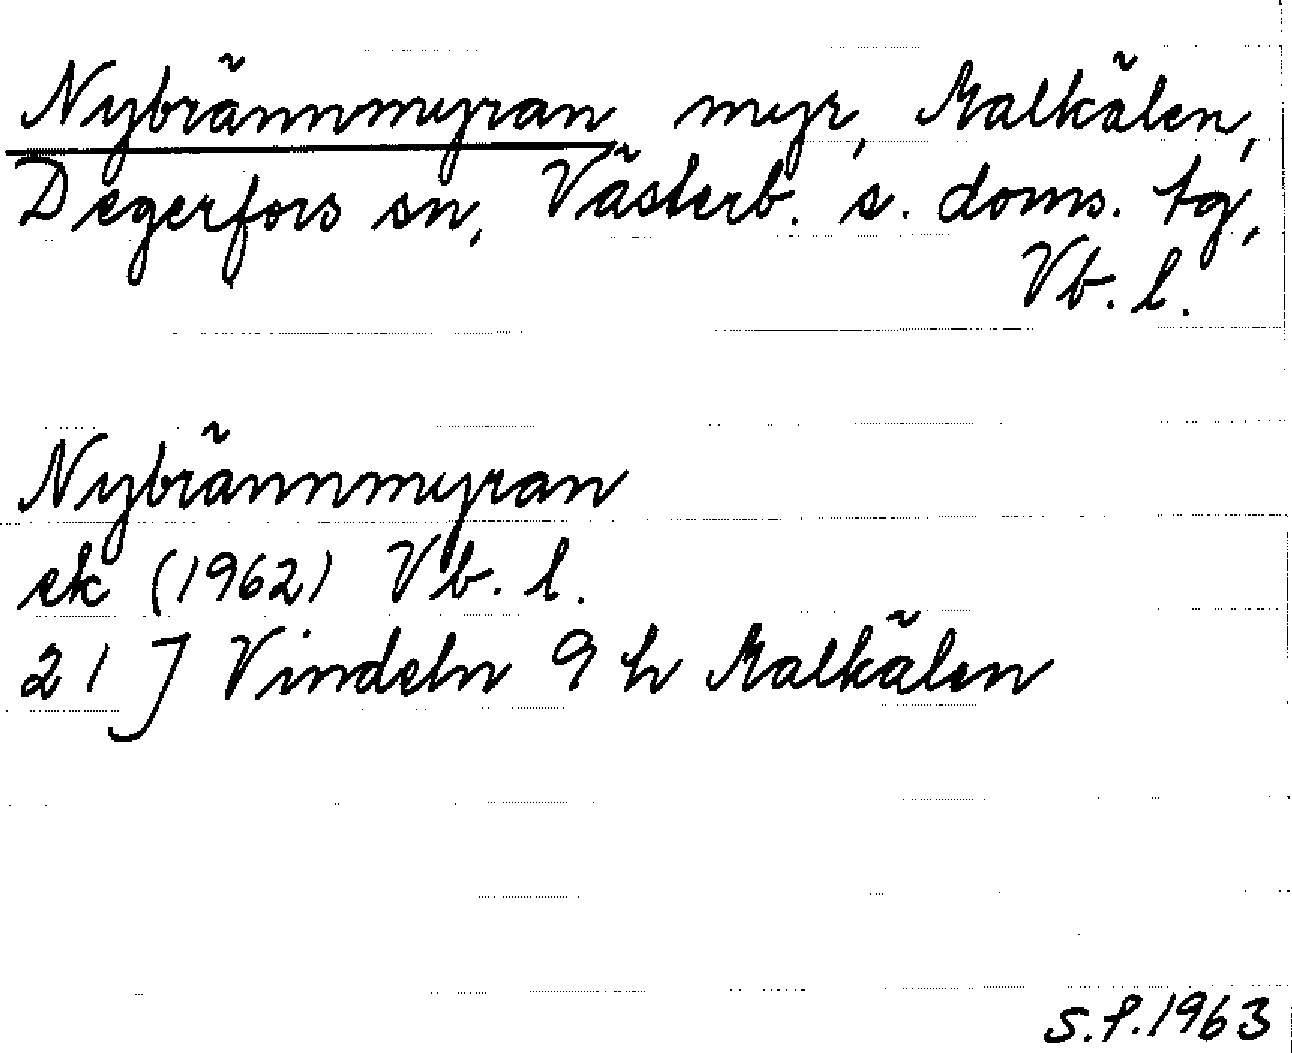 Nybrännmyran, myr, Malkälen,
Degerfors sn, Västerb. s. doms. tg,
Vb. l.
Nybrännmyran
ek (1962) Vb. l.
21 J Vindeln 9 h Malkälen
S.F. 1963